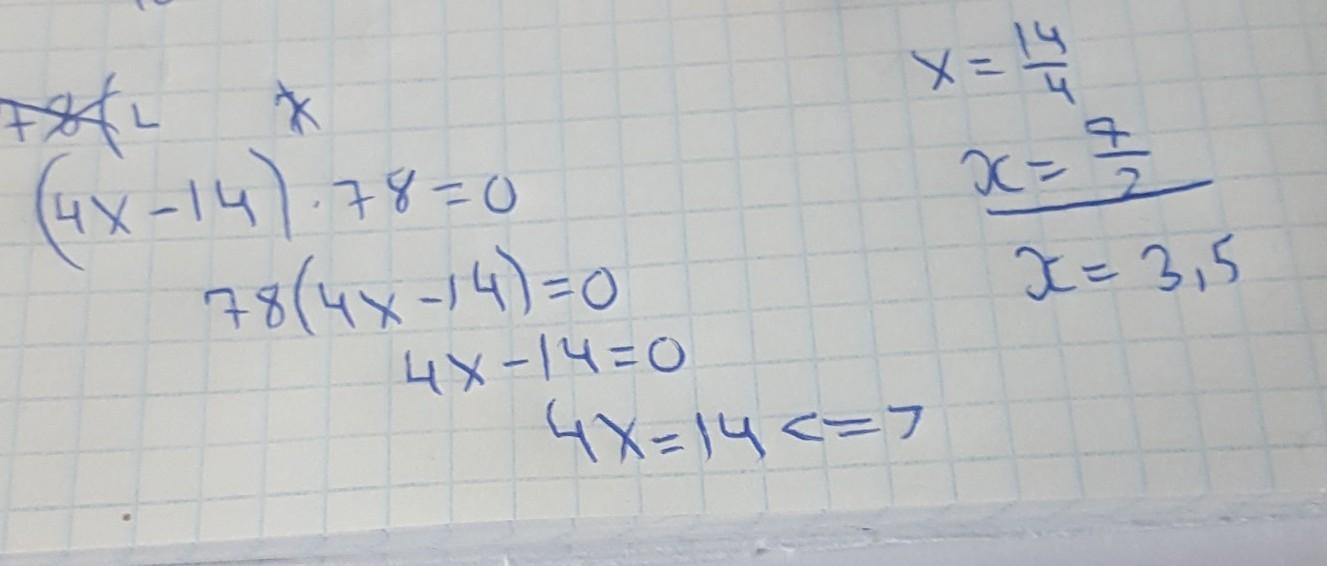 (4x-14)·78=0
78(4x-14)=0
4x-14=0
4x=14<=>
x=14/4
x=7/2
x=3,5